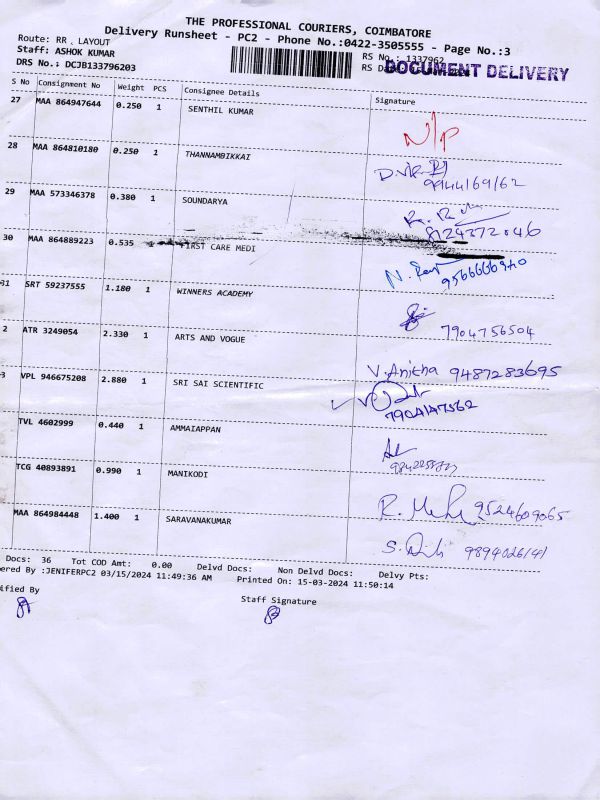 THE PROFESSIONAL COURIERS, COIMBATORE
Delivery Runsheet - PC2 - Phone No.:0422-3505555 - Page No.:3
Route: RR . LAYOUT
Staff: ASHOK KUMAR
DRS No.: DCJB133796203
RS No.: 1337962
RS
DOCUMENT DELIVERY
S No Consignment No Weight PCS Consignee Details Signature
27 MAA 864947644 0.250 1 SENTHIL KUMAR N/P
28 MAA 864810180 0.250 1 THANNAMBIKKAI
9944169162
29 MAA 573346378 0.380 1 SOUNDARYA
8124372046
30 MAA 864889223 0.535 FIRST CARE MEDI
31 SRT 59237555 1.180 1 WINNERS ACADEMY
7904756504
2 ATR 3249054 2.330 1 ARTS AND VOGUE
V.Anitha 9487283695
3 VPL 946675208 2.880 1 SRI SAI SCIENTIFIC
TVL 4602999 0.440 1 AMMAIAPPAN
TCG 40893891 0.990 1 MANIKODI
9524609065
MAA 864984448 1.400 1 SARAVANAKUMAR
9894026141
Docs: 36 Tot COD Amt: 0.00 Delvd Docs: Non Delvd Docs: Delvy Pts:
ered By :JENIFERPC2 03/15/2024 11:49:36 AM Printed On: 15-03-2024 11:50:14
ified By
Staff Signature